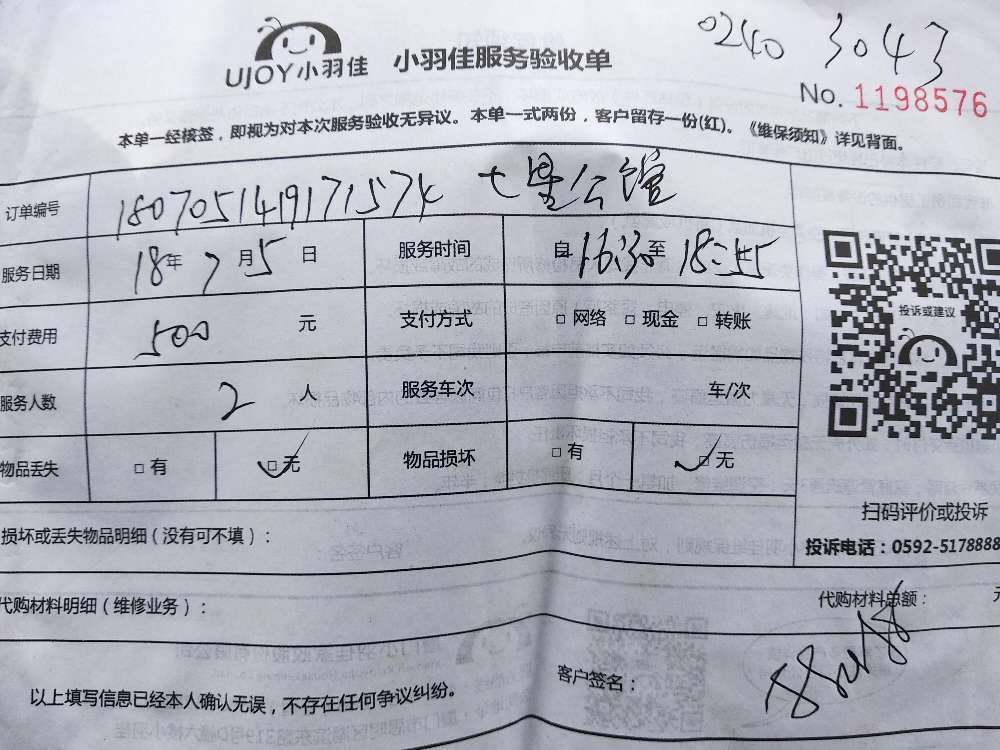 0240 3043
UJOY小羽佳 小羽佳服务验收单
No. 1198576
本单一经核签，即视为对本次服务验收无异议。本单一式两份，客户留存一份(红)。《维保须知》详见背面。
订单编号 180705149171574 七星公馆
服务日期 18年7月5日 服务时间 自16:30至18:55
支付费用 500 元 支付方式 □ 网络 □ 现金 □ 转账
投诉或建议
服务人数 2 人 服务车次 车/次
物品丢失 □ 有 □ 无 物品损坏 □ 有 □ 无
扫码评价或投诉
损坏或丢失物品明细（没有可不填）：
投诉电话：0592-5178888
代购材料明细（维修业务）：
代购材料总额：
客户签名：
以上填写信息已经本人确认无误，不存在任何争议纠纷。